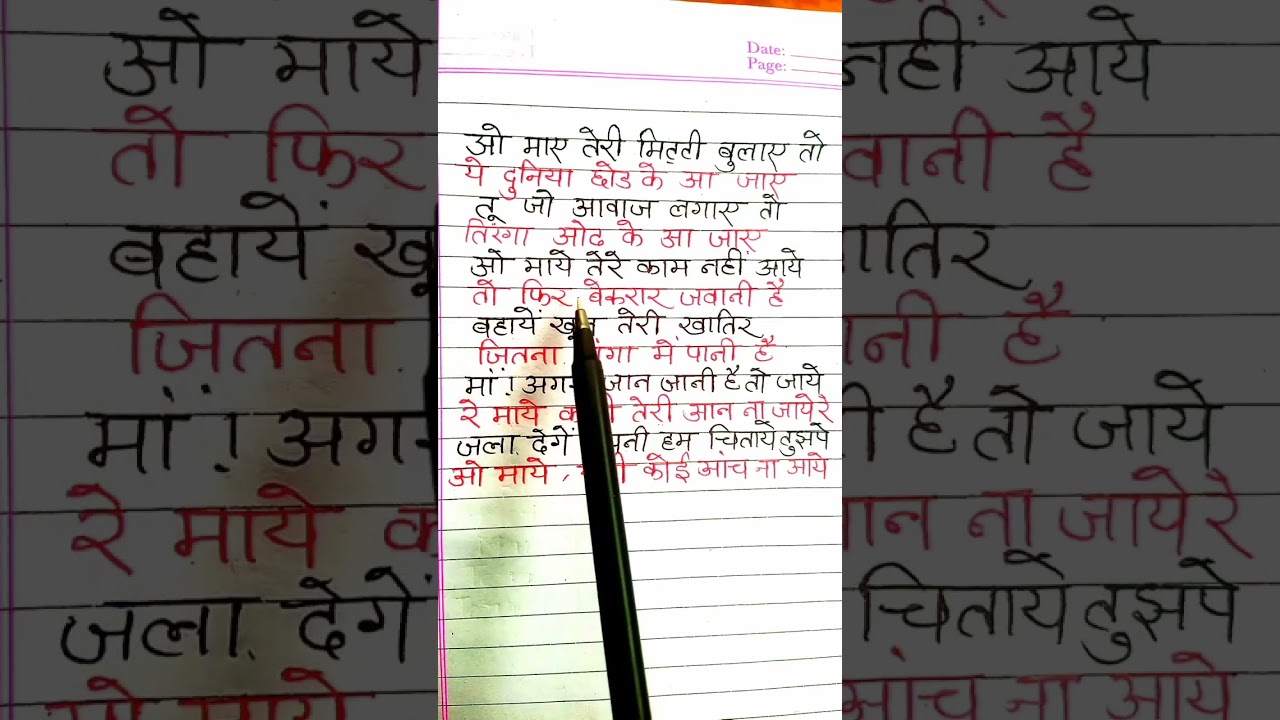 Date:
Page:
ओ माए तेरी मिट्टी बुलाए तो
ये दुनिया छोड के आ जाए
तू जो आवाज लगाए तो
तिरंगा ओढ के आ जाए
ओ माये तेरे काम नहीं आये
तो फिर बेकरार जवानी है
बहायें खून तेरी खातिर
जितना में पानी है
मां ! जान जानी है तो जाये
रे माये तेरी आन ना जाये रे
जला देगें हम चितायें तुझपे
ओ माये , कोई आंच ना आये